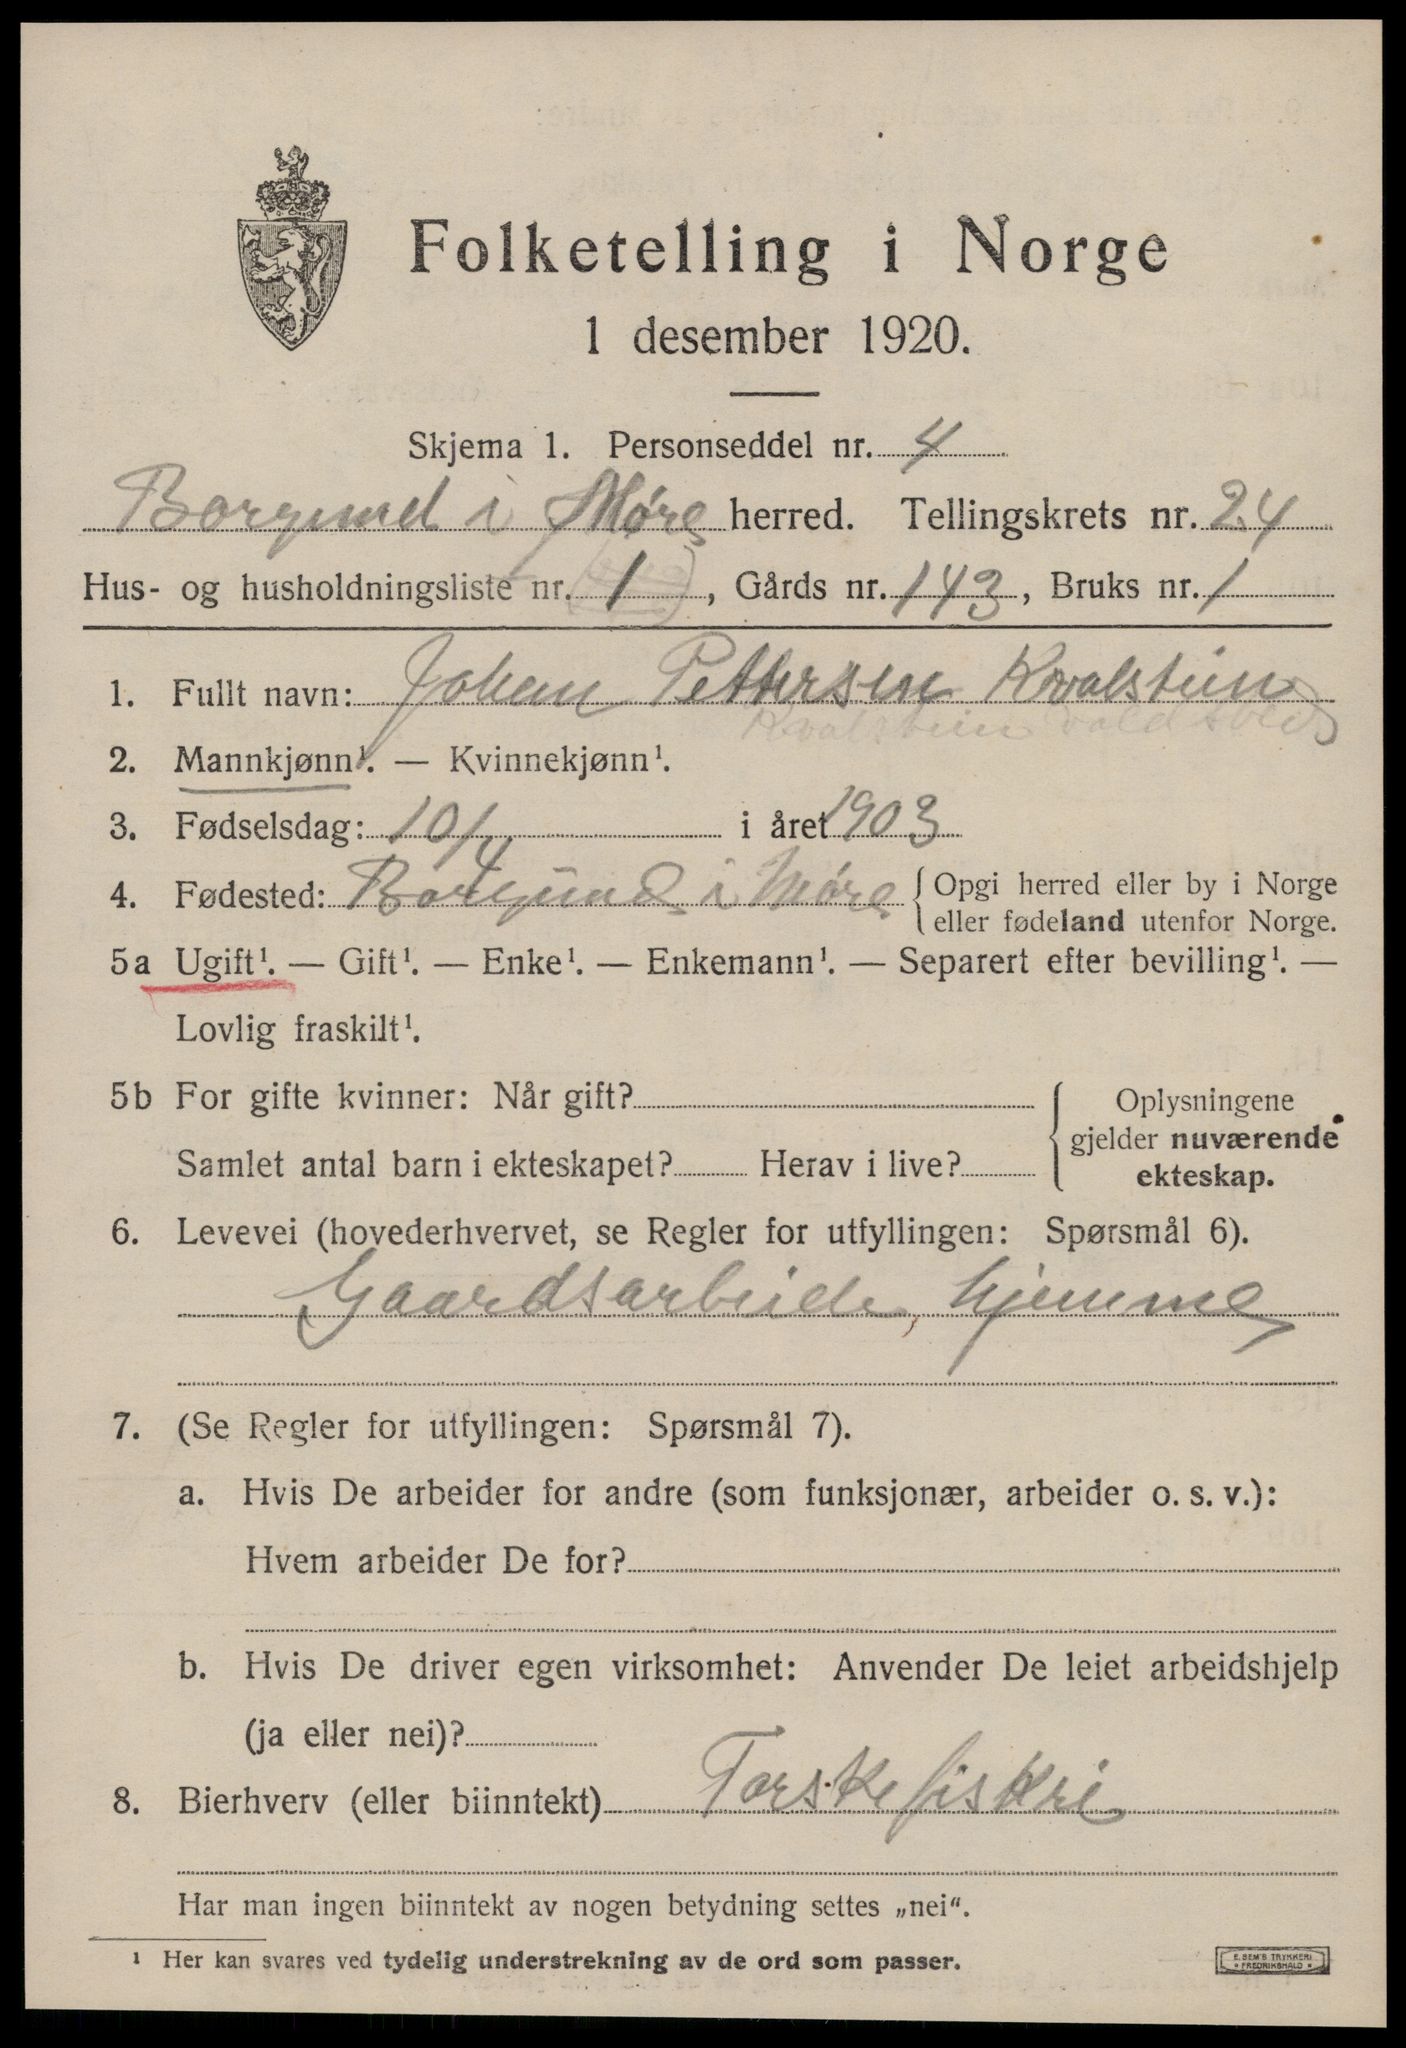 Folketelling i Norge
1 desember 1920.
Skjema 1. Personseddel nr. 4
Borgund i Møre herred. Tellingskrets nr. 24
Hus- og husholdningsliste nr. 1, Gårds nr. 143, Bruks nr. 1
1. Fullt navn: Johan Pettersen Kvalstein
Kvalstein
2. Mannkjønn¹. — Kvinnekjønn¹.
3. Fødselsdag: 10/4 i året 1903
4. Fødested: Borgund i Møre { Opgi herred eller by i Norge
eller fødeland utenfor Norge.
5a Ugift¹. — Gift¹. — Enke¹. — Enkemann¹. — Separert efter bevilling¹. —
Lovlig fraskilt¹.
5b For gifte kvinner: Når gift?
Samlet antal barn i ekteskapet? Herav i live?
{ Oplysningene
gjelder nuværende
ekteskap.
6. Levevei (hovederhvervet, se Regler for utfyllingen: Spørsmål 6).
Gaardsarbeide, hjemme
7. (Se Regler for utfyllingen: Spørsmål 7).
a. Hvis De arbeider for andre (som funksjonær, arbeider o. s. v.):
Hvem arbeider De for?
b. Hvis De driver egen virksomhet: Anvender De leiet arbeidshjelp
(ja eller nei)?
8. Bierhverv (eller biinntekt) Torskefiskri
Har man ingen biinntekt av nogen betydning settes „nei“.
¹ Her kan svares ved tydelig understrekning av de ord som passer.
E. SEM'S TRYKKERI
* FREDRIKSHALD *